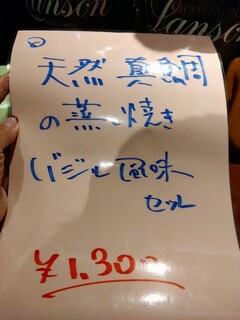 Lanson
Lanson
天然 真鯛
の蒸し焼き
バジル風味
セット
¥1,300